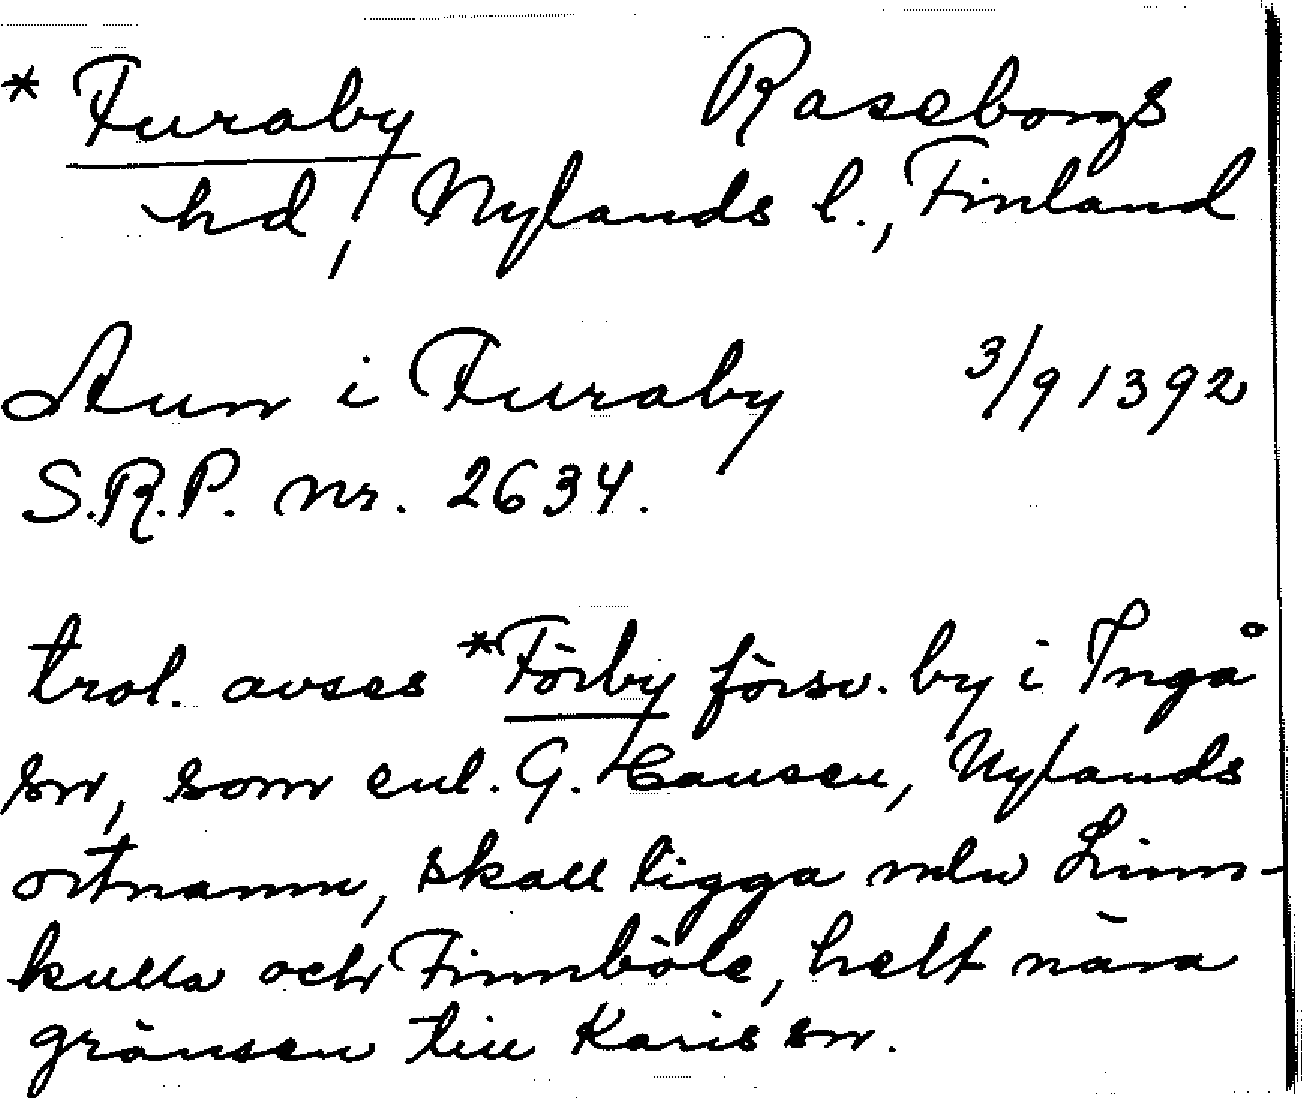 * Furaby Raseborgs
hd, Nylands l., Finland
Aun i Furaby 3/9 1392
S.R.P. nr. 2634.
trol. avses *Förby försv. by i Ingå
sn, som enl. G. Causen, Nylands
ortnamn, skall ligga mln Linn-
kulla och Finnböle, helt nära
gränsen till Karis sn.